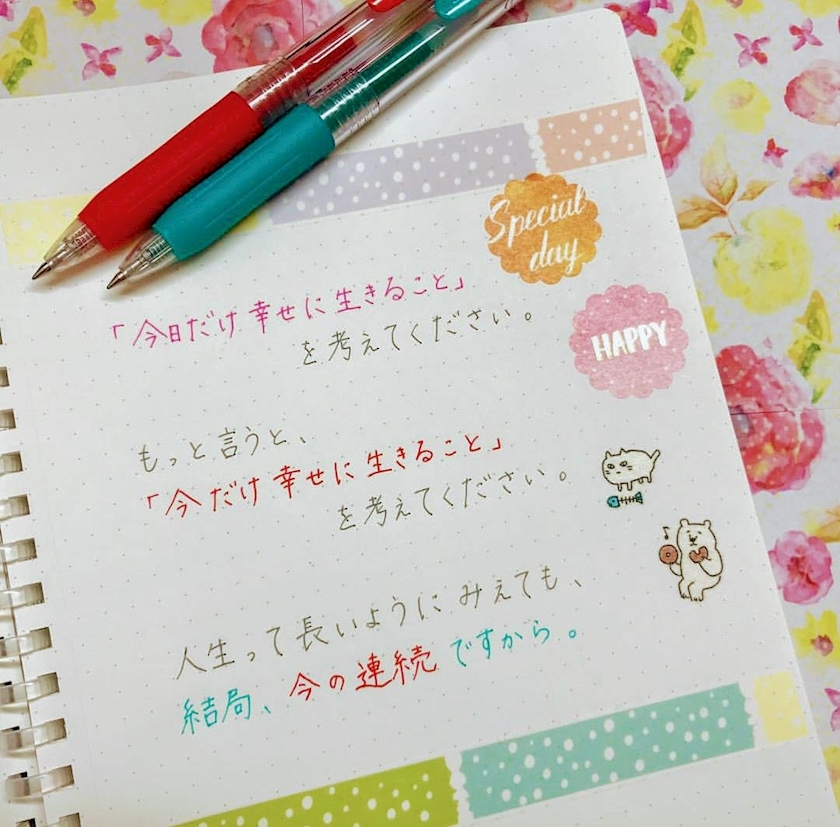 Special
day
「今日だけ幸せに生きること」
を考えてください。
HAPPY
もっと言うと、
「今だけ幸せに生きること」
を考えてください。
人生って長いようにみえても、
結局、今の連続ですから。